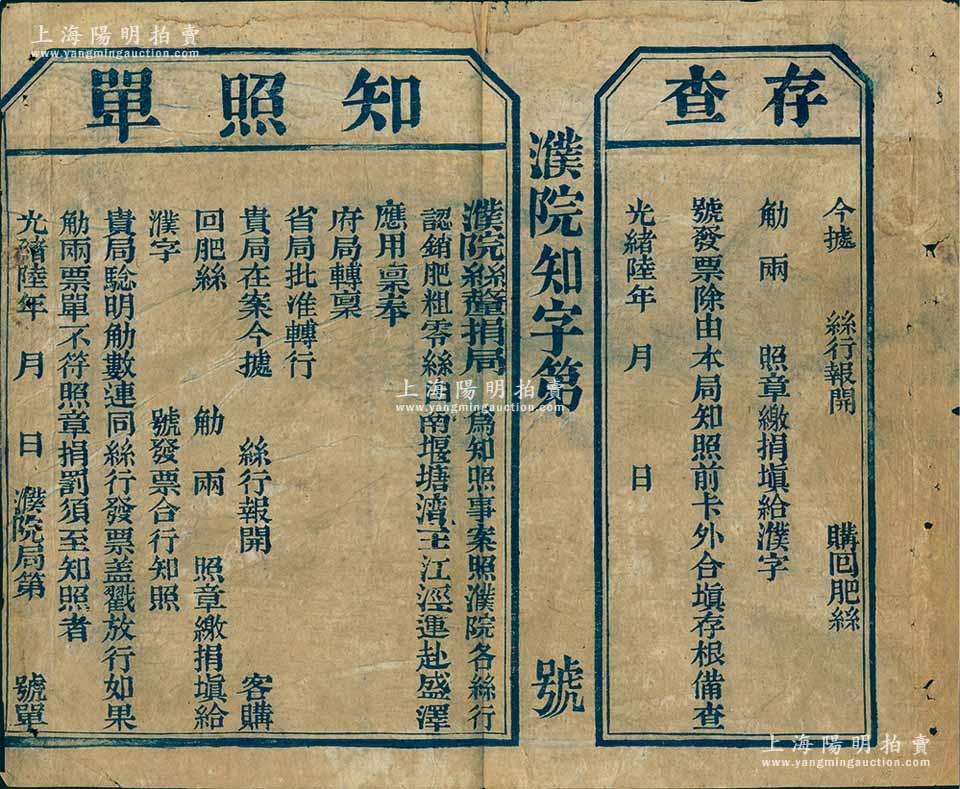 存查
今據 絲行報開 購回肥絲
觔 兩 照章繳捐塡給濮字
號發票除由本局知照前卡外合塡存根備查
光緒陸年 月 日
濮院知字第 號
知照單
濮院絲釐捐局 爲知照事案照濮院各絲行
認銷肥粗零絲 由南堰塘灣王江涇運赴盛澤
應用稟奉
府局轉稟
省局批准轉行
貴局在案今據 絲行報開 客購
回肥絲 觔 兩 照章繳捐塡給
濮字 號發票合行知照
貴局騐明觔數連同絲行發票盖戳放行如果
觔兩票單不符照章捐罰須至知照者
光緒陸年 月 日 濮院局第 號單
上海陽明拍賣
www.yangmingauction.com
上海陽明拍賣
www.yangmingauction.com
上海陽明拍賣
www.yangmingauction.com